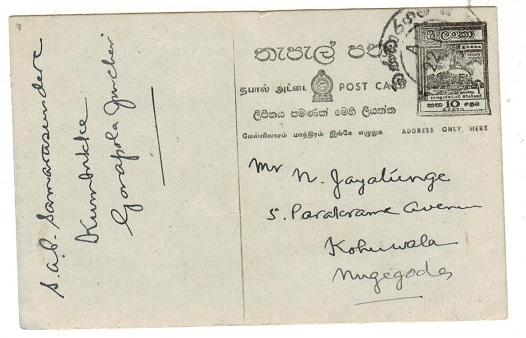 S.A.P. Samarasundera
Kumbukke
Gonapola Junction
තැපැල් පත
தபால் அட்டை POST CARD
ලිපිනය පමණක් මෙහි ලියන්න
மேல்விலாசம் மாத்திரம் இங்கே எழுதுக ADDRESS ONLY HERE
ශ්‍රී ලංකා
10
Mr N. Jayatunge
5. Parakrama Avenue
Kohuwala
Nugegoda